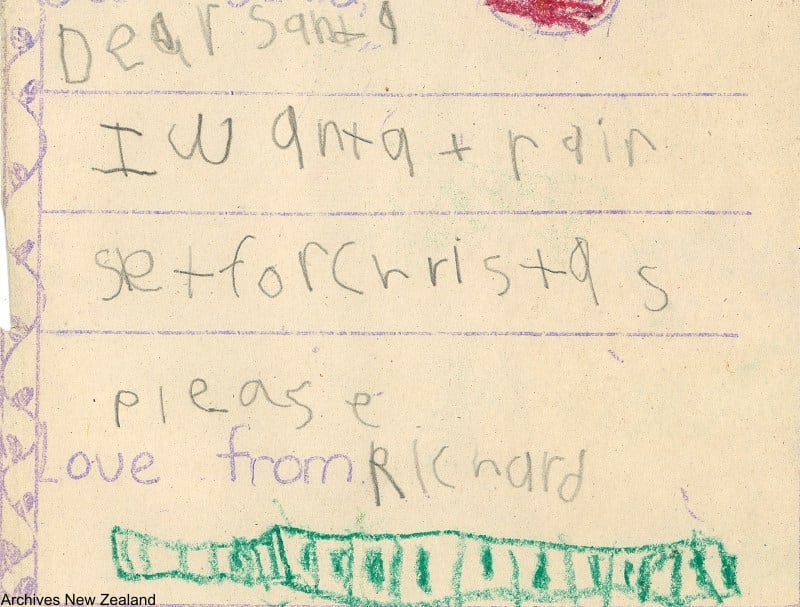 Dear Santa
I want a train
set for Christas
please
Love from Richard
Archives New Zealand